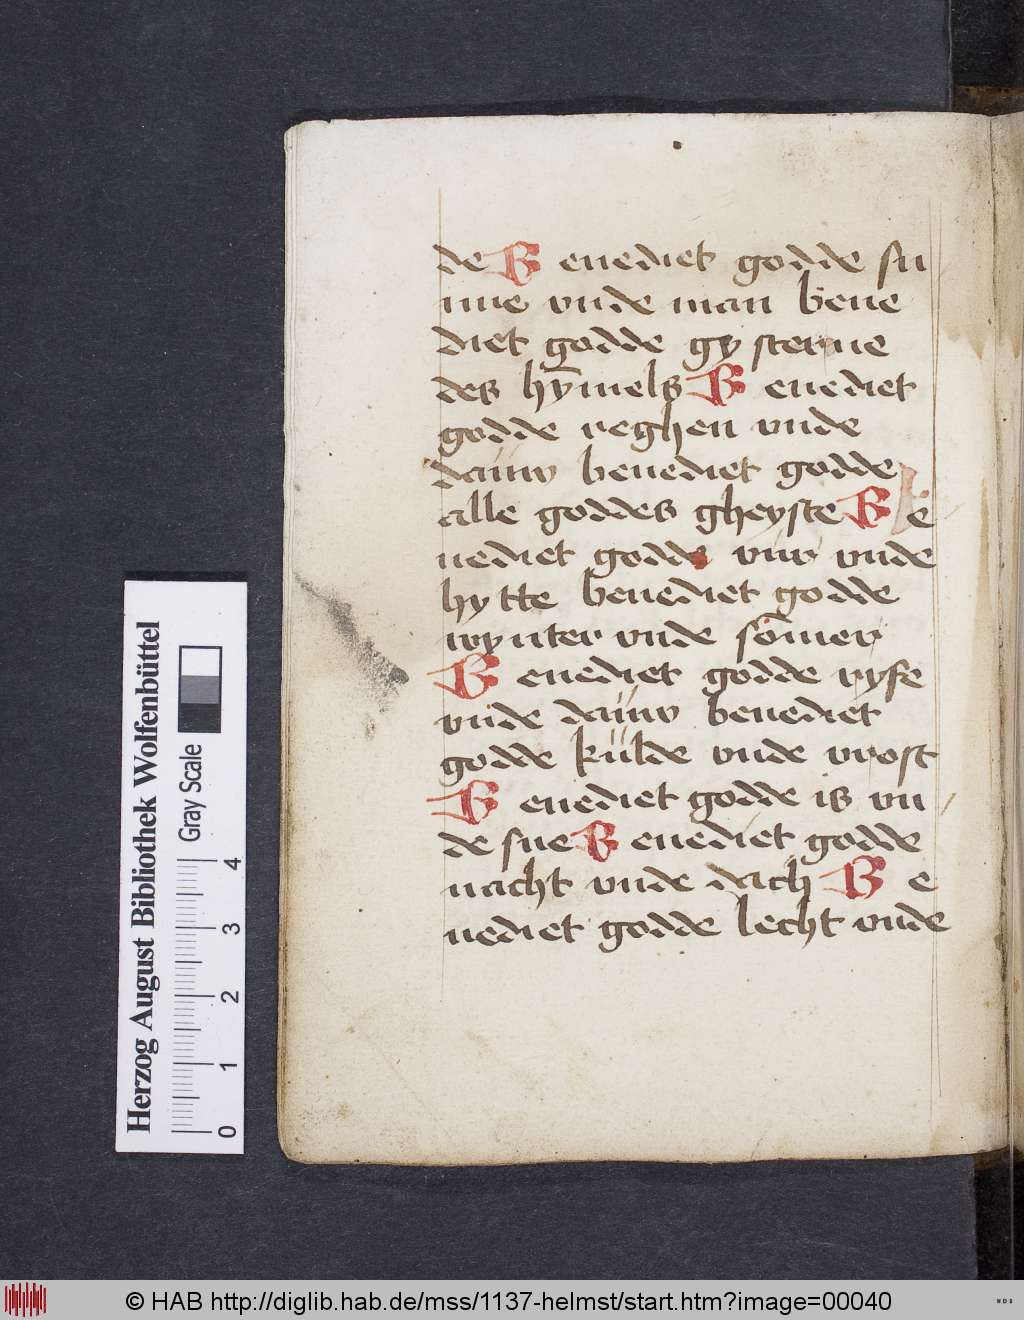 de Benediet godde su
nne vnde man bene
diet godde gysterne
des hȳmels Benediet
godde reghen vnde
dauw benediet godde
alle goddes gheyste Be
nediet godde vur vnde
hytte benediet godde
wynter vnde sōmer
Benediet godde ryfe
vnde dauw benediet
godde külde vnde vrost
Benediet godde is vn
de sne Benediet godde
nacht vnde dach Be
nediet godde lecht vnde
Herzog August Bibliothek Wolfenbüttel
Gray Scale
0 1 2 3 4
© HAB http://diglib.hab.de/mss/1137-helmst/start.htm?image=00040